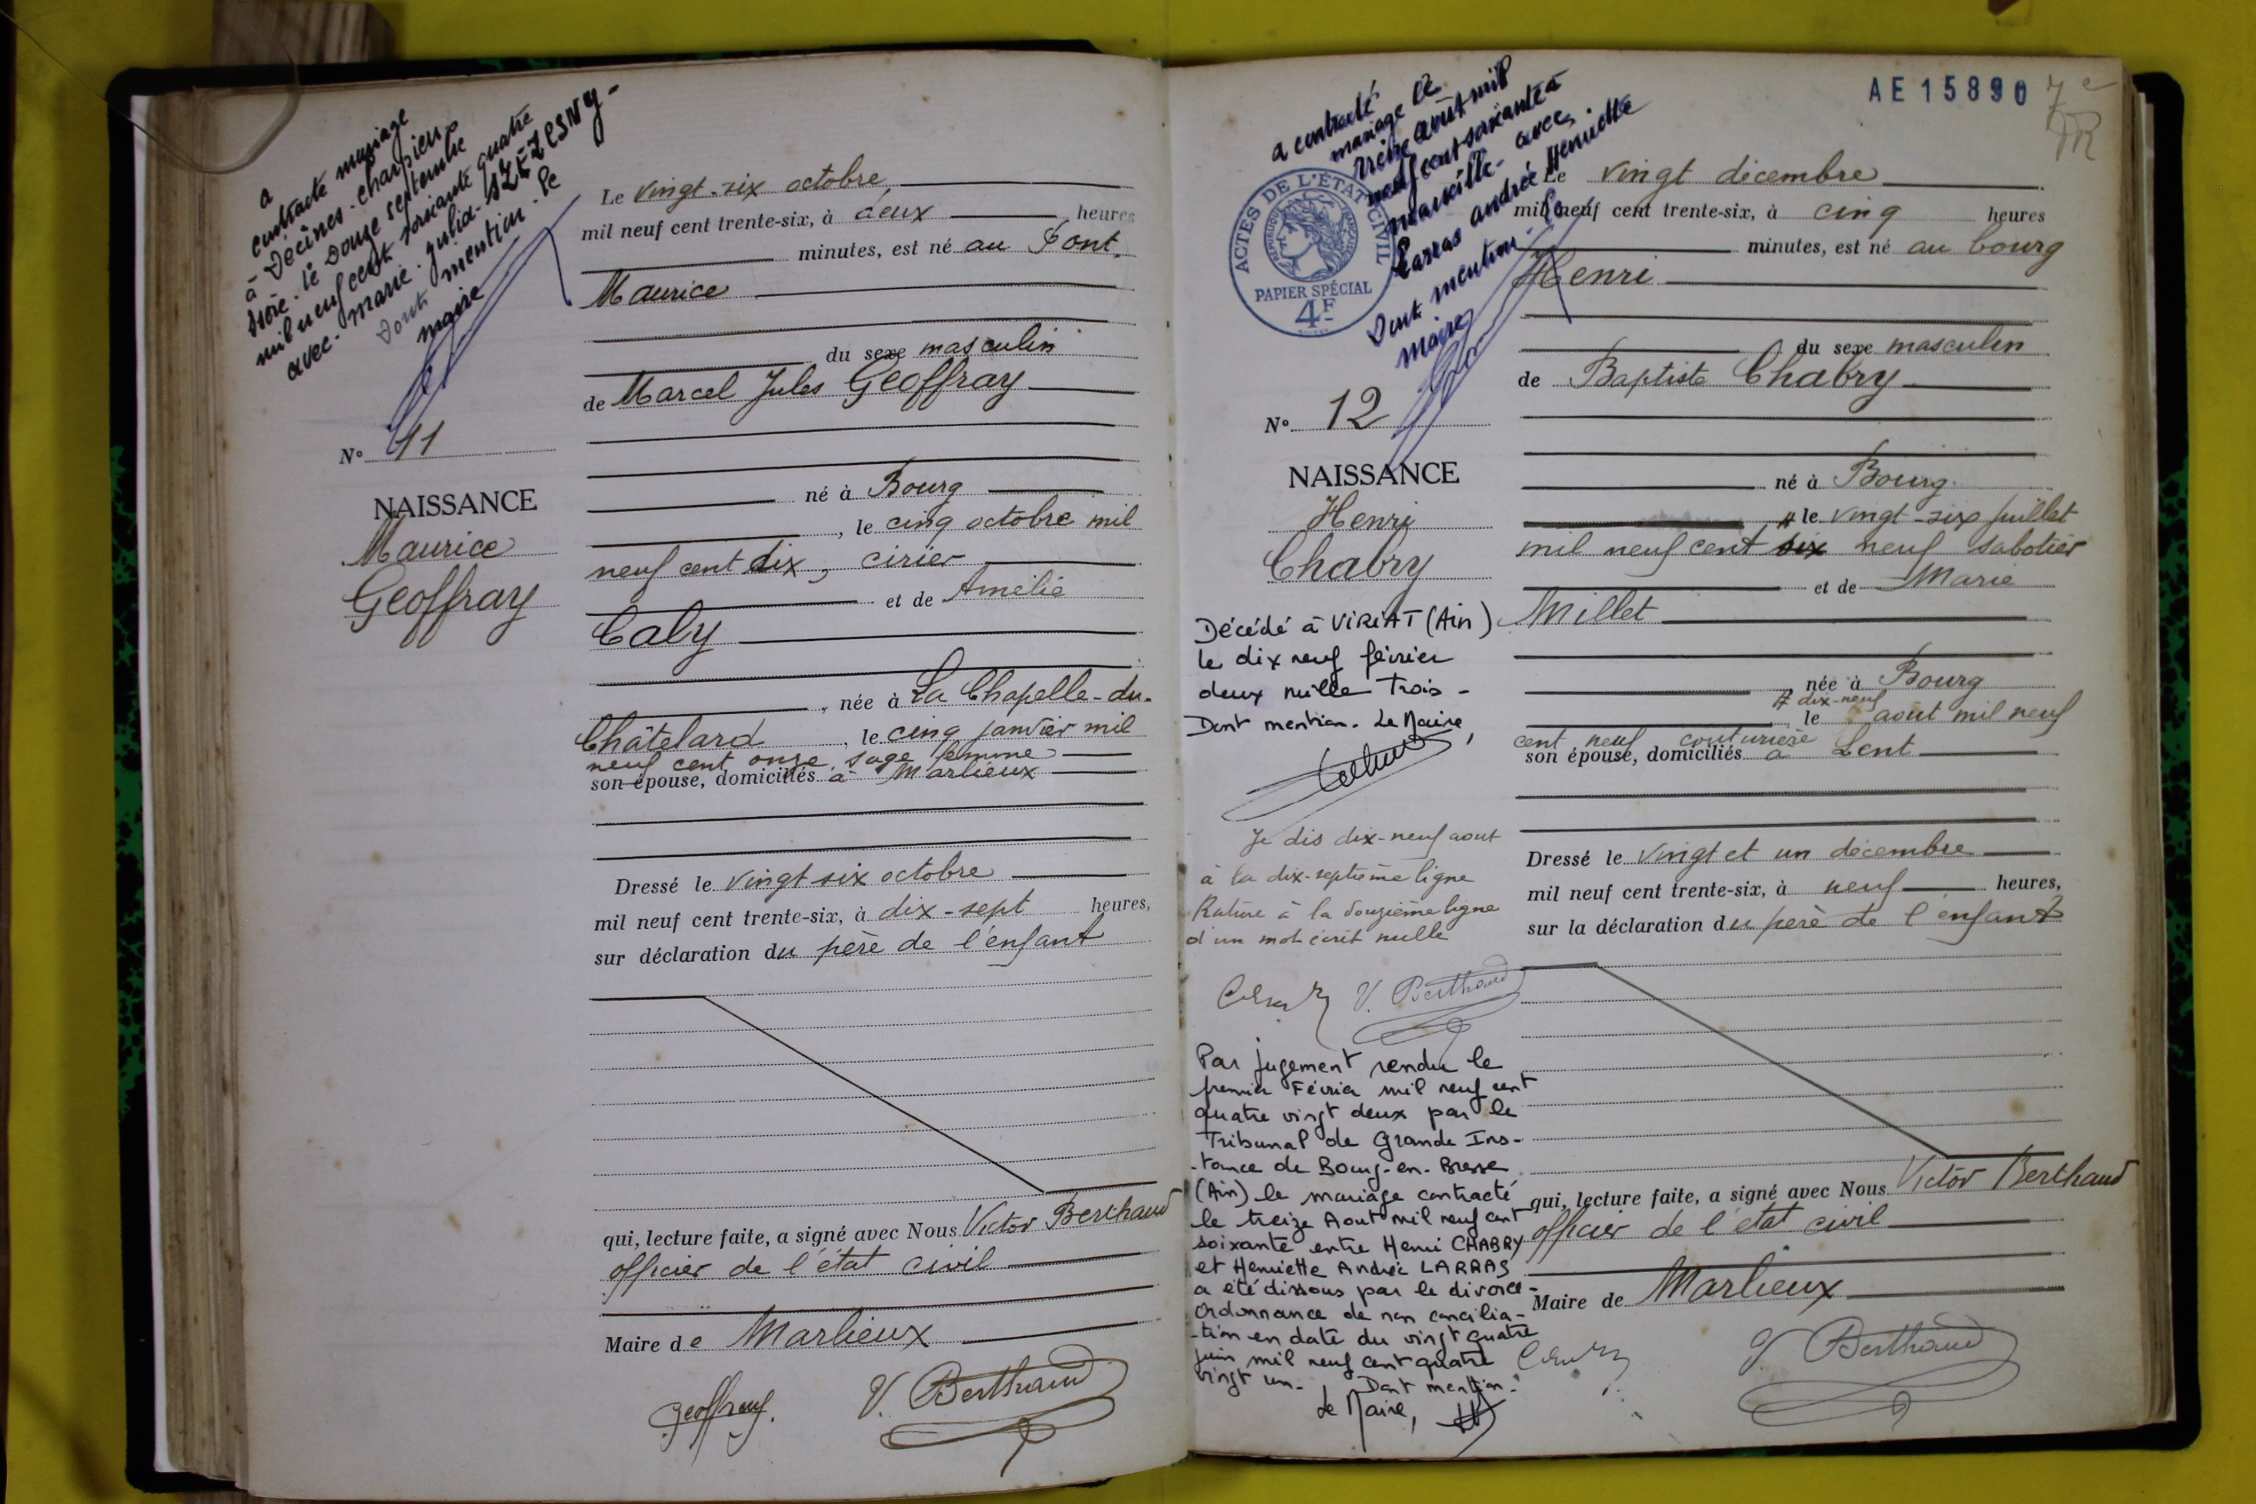 a
contracté mariage
à Décines-Charpieu
Isère. le douze septembre
mil neuf cent soixante quatre
avec. Marie. Julia.
dont mention. le
maire
Le vingt-six octobre
mil neuf cent trente-six, à deux heures
minutes, est né au Pont
Maurice
du sexe masculin
de Marcel Jules Geoffray
N° 11
NAISSANCE
Maurice
Geoffray
né à Bourg
, le cinq octobre mil
neuf cent dix, cirier
et de Amélie
Caly
, née à La Chapelle-du-
Châtelard, le cinq janvier mil
neuf cent onze sage femme
son épouse, domiciliés à Marlieux
Dressé le vingt six octobre
mil neuf cent trente-six, à dix-sept heures,
sur déclaration du père de l'enfant
qui, lecture faite, a signé avec Nous Victor Berthaud
officier de l'état civil
Maire de Marlieux
Geoffray
V. Berthaud
AE 15890
7e
a contracté
mariage le
treize août mil
neuf cent soixante à
Marseille. avec
Larras Andrée Henriette
dont mention. le
maire
ACTES DE L'ÉTAT CIVIL
PAPIER SPÉCIAL
4F
Le vingt décembre
mil neuf cent trente-six, à cinq heures
minutes, est né au bourg
Henri
du sexe masculin
de Baptiste Chabry
N° 12
NAISSANCE
Henri
Chabry
né à Bourg
le vingt-six juillet
mil neuf cent six neuf sabotier
et de Marie
Millet
née à Bourg
dix-neuf
, le aout mil neuf
cent neuf couturière
son épouse, domiciliés à Lent
Décédé à VIRIAT (Ain)
le dix neuf février
deux mille Trois -
Dont mention. Le Maire,
Je dis dix-neuf aout
à la dix-septième ligne
Rature à la douzième ligne
d'un mot écrit nulle
V. Berthaud
Dressé le vingt et un décembre
mil neuf cent trente-six, à neuf heures,
sur la déclaration du père de l'enfant
Par jugement rendu le
premier Février mil neuf cent
quatre vingt deux par le
Tribunal de Grande Ins-
-tance de Bourg-en-Bresse
(Ain) le mariage contracté
le treize Aout mil neuf cent
soixante entre Henri CHABRY
et Henriette Andrée LARRAS
a été dissous par le divorce-
Ordonnance de non concilia-
-tion en date du vingt quatre
juin mil neuf cent quatre
vingt un. Dont mention.
Le Maire,
qui, lecture faite, a signé avec Nous Victor Berthaud
officier de l'état civil
Maire de Marlieux
V. Berthaud